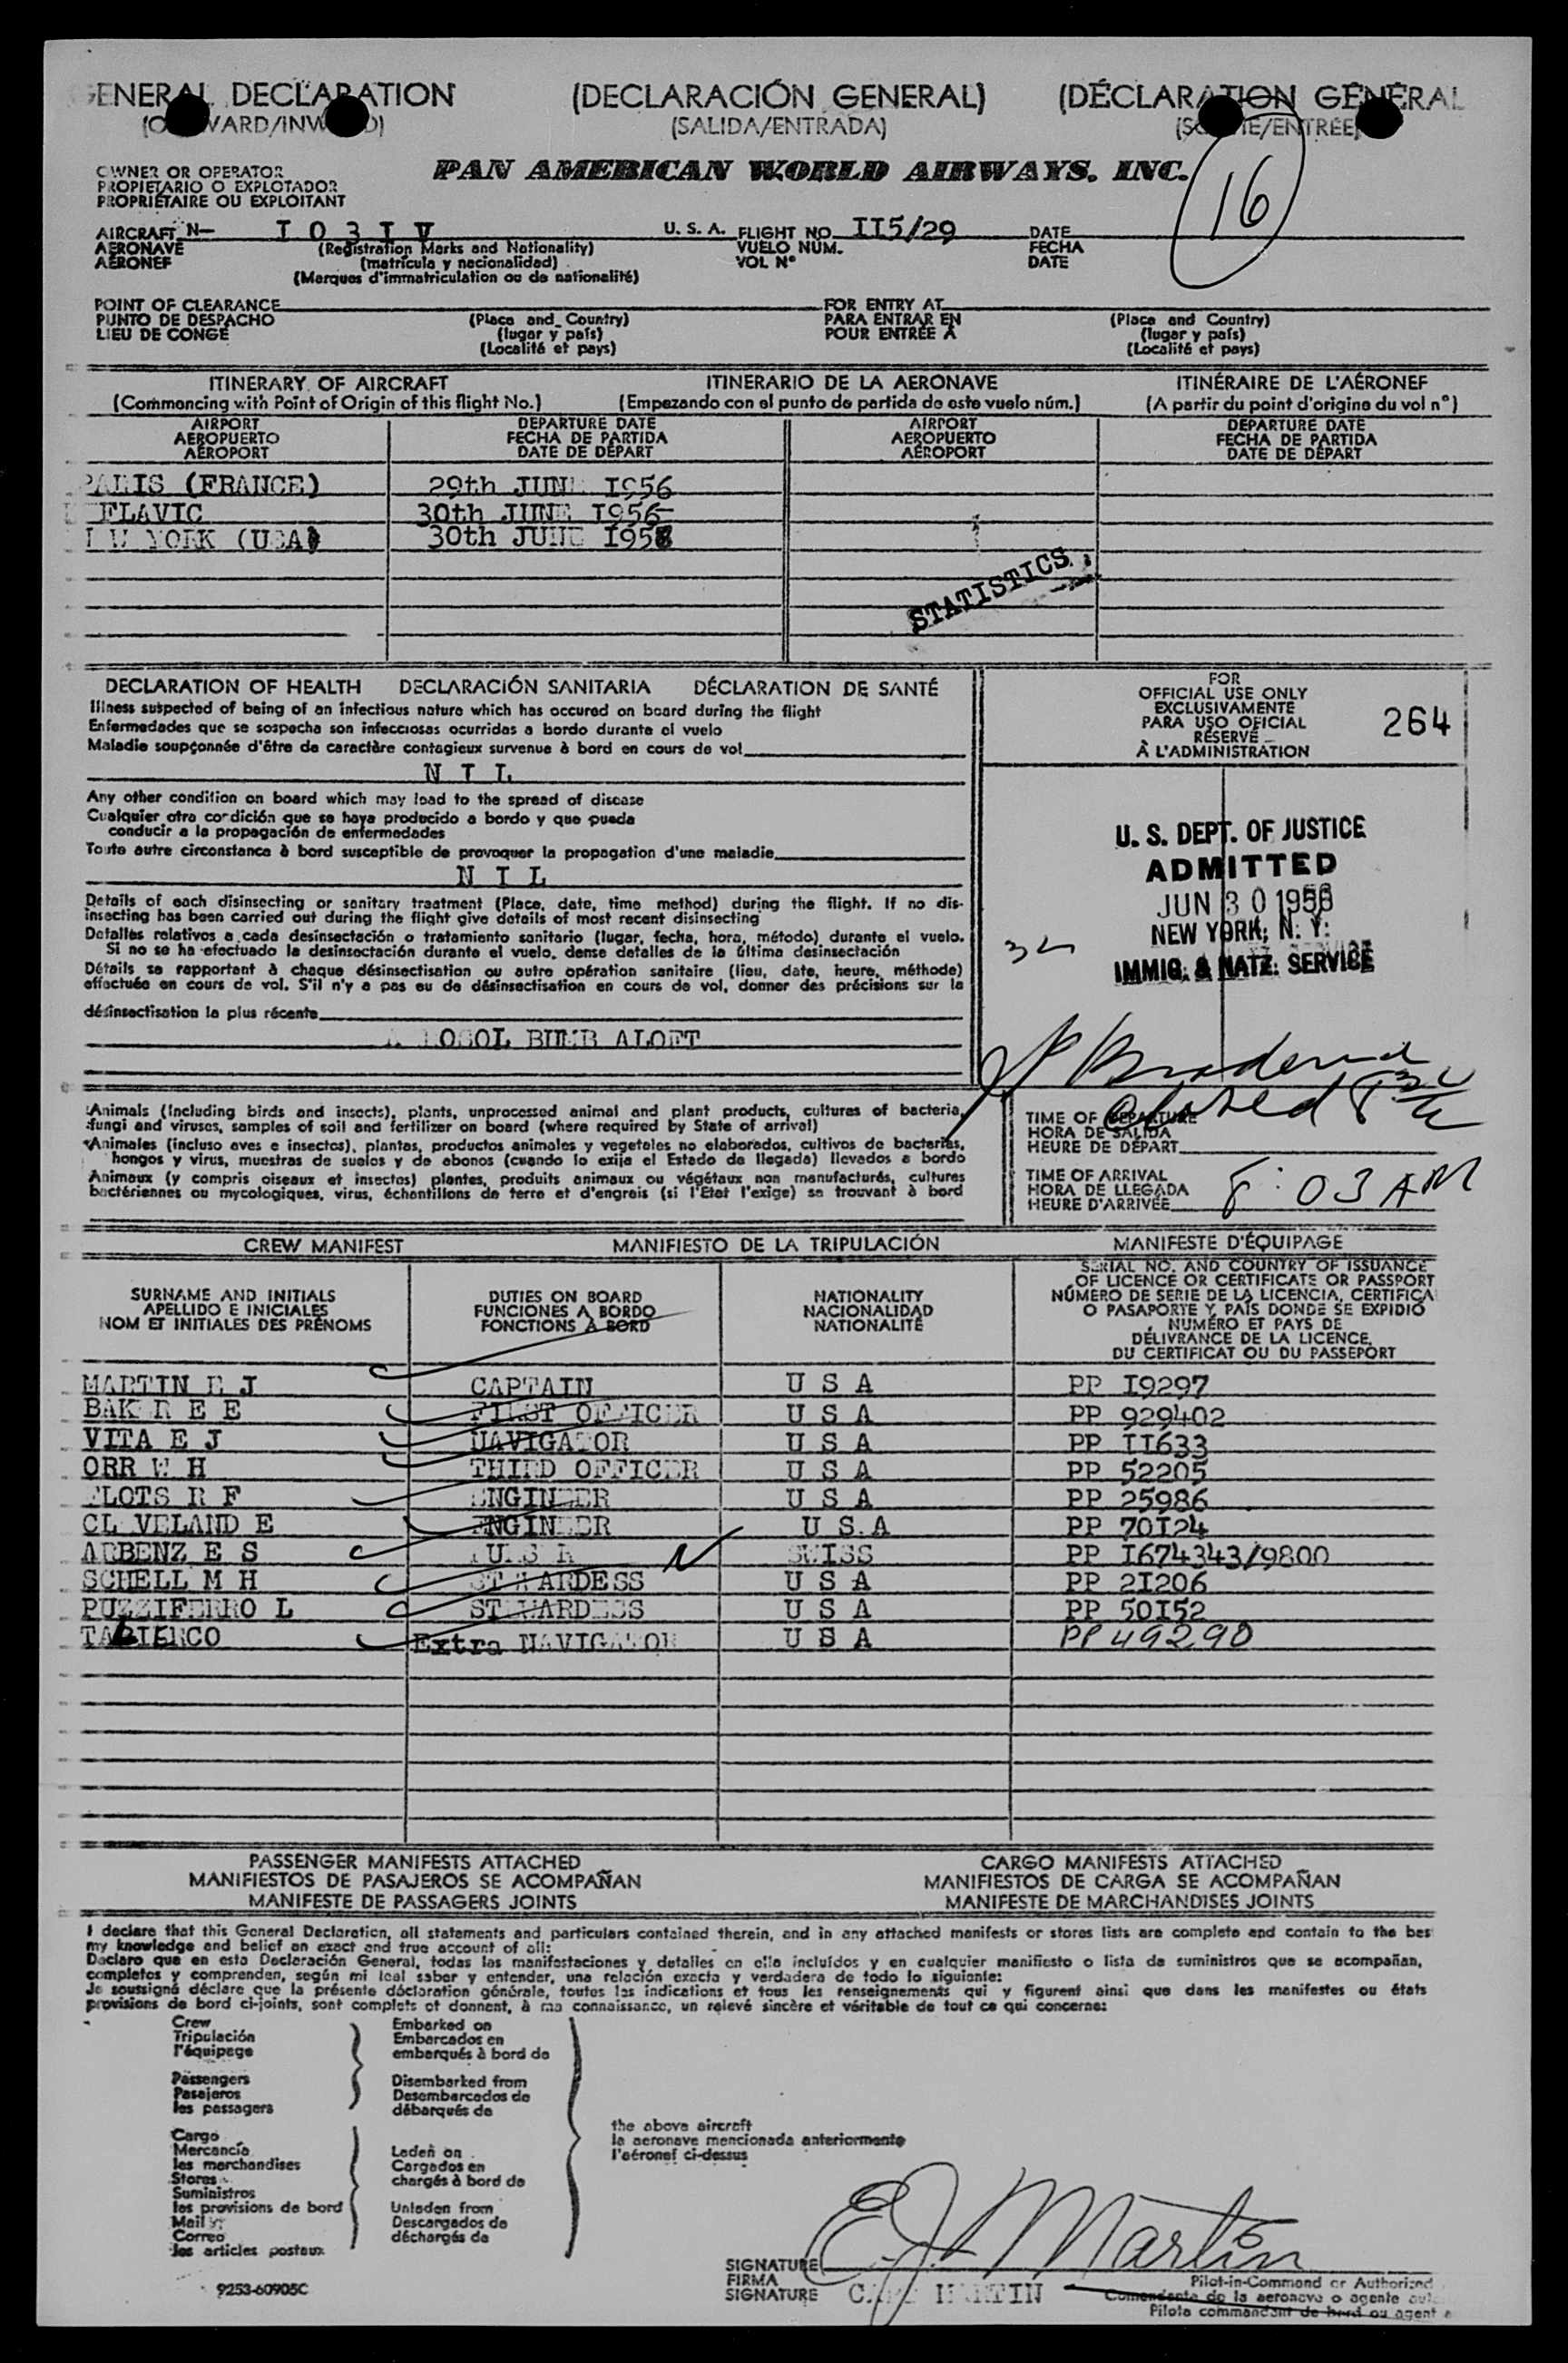 GENERAL DECLARATION (DECLARACIÓN GENERAL) (DÉCLARATION GÉNÉRAL
(SALIDA/ENTRADA)
OWNER OR OPERATOR
PROPIETARIO O EXPLOTADOR
PROPRIÉTAIRE OU EXPLOITANT
PAN AMERICAN WORLD AIRWAYS, INC.
16
AIRCRAFT N- I 0 3 I V U. S. A. FLIGHT NO. II5/29 DATE
AERONAVE (Registration Marks and Nationality) VUELO NÚM. FECHA
AÉRONEF (matrícula y nacionalidad) VOL N° DATE
(Marques d'immatriculation ou de nationalité)
POINT OF CLEARANCE FOR ENTRY AT
PUNTO DE DESPACHO (Place and Country) PARA ENTRAR EN (Place and Country)
LIEU DE CONGÉ (lugar y país) POUR ENTRÉE À (lugar y país)
(Localité et pays) (Localité et pays)
ITINERARY OF AIRCRAFT ITINERARIO DE LA AERONAVE ITINÉRAIRE DE L'AÉRONEF
(Commencing with Point of Origin of this flight No.) (Empezando con el punto de partida de este vuelo núm.) (A partir du point d'origine du vol n°)
AIRPORT DEPARTURE DATE AIRPORT DEPARTURE DATE
AEROPUERTO FECHA DE PARTIDA AEROPUERTO FECHA DE PARTIDA
AÉROPORT DATE DE DÉPART AÉROPORT DATE DE DÉPART
PARIS (FRANCE) 29th JUNE I956
FLAVIC 30th JUNE I956
YORK (USA) 30th JUNE I956
STATISTICS
DECLARATION OF HEALTH DECLARACIÓN SANITARIA DÉCLARATION DE SANTÉ
Illness suspected of being of an infectious nature which has occured on board during the flight
Enfermedades que se sospecha son infecciosas ocurridas a bordo durante el vuelo
Maladie soupçonnée d'être de caractère contagieux survenue à bord en cours de vol
N I L
Any other condition on board which may lead to the spread of disease
Cualquier otra condición que se haya producido a bordo y que pueda
conducir a la propagación de enfermedades
Toute autre circonstance à bord susceptible de provoquer la propagation d'une maladie
N I L
Details of each disinsecting or sanitary treatment (Place, date, time method) during the flight. If no dis-
insecting has been carried out during the flight give details of most recent disinsecting
Detalles relativos a cada desinsectación o tratamiento sanitario (lugar, fecha, hora, método) durante el vuelo.
Si no se ha efectuado la desinsectación durante el vuelo, dense detalles de la última desinsectación
Détails se rapportant à chaque désinsectisation ou autre opération sanitaire (lieu, date, heure, méthode)
effectuée en cours de vol. S'il n'y a pas eu de désinsectisation en cours de vol, donner des précisions sur la
désinsectisation la plus récente
BUMB ALOFT
FOR
OFFICIAL USE ONLY
EXCLUSIVAMENTE
PARA USO OFICIAL
RÉSERVÉ
À L'ADMINISTRATION
264
U. S. DEPT. OF JUSTICE
ADMITTED
JUN 30 1956
NEW YORK, N. Y.
IMMIG. & NATZ. SERVICE
Animals (Including birds and insects), plants, unprocessed animal and plant products, cultures of bacteria,
fungi and viruses, samples of soil and fertilizer on board (where required by State of arrival)
Animales (incluso aves e insectos), plantas, productos animales y vegetales no elaborados, cultivos de bacterias,
hongos y virus, muestras de suelos y de abonos (cuando lo exija el Estado de llegada) llevados a bordo
Animaux (y compris oiseaux et insectes) plantes, produits animaux ou végétaux non manufacturés, cultures
bactériennes ou mycologiques, virus, échantillons de terre et d'engrais (si l'Etat l'exige) se trouvant à bord
TIME OF DEPARTURE
HORA DE SALIDA
HEURE DE DÉPART
TIME OF ARRIVAL
HORA DE LLEGADA
HEURE D'ARRIVÉE 8:03 AM
CREW MANIFEST MANIFIESTO DE LA TRIPULACIÓN MANIFESTE D'ÉQUIPAGE
SURNAME AND INITIALS
APELLIDO E INICIALES
NOM ET INITIALES DES PRÉNOMS
DUTIES ON BOARD
FUNCIONES A BORDO
FONCTIONS À BORD
NATIONALITY
NACIONALIDAD
NATIONALITÉ
SERIAL NO. AND COUNTRY OF ISSUANCE
OF LICENCE OR CERTIFICATE OR PASSPORT
NÚMERO DE SERIE DE LA LICENCIA, CERTIFICA
O PASAPORTE Y PAÍS DONDE SE EXPIDIÓ
NUMÉRO ET PAYS DE
DÉLIVRANCE DE LA LICENCE,
DU CERTIFICAT OU DU PASSEPORT
MARTIN E J CAPTAIN U S A PP I9297
BAKER E E FIRST OFFICER U S A PP 929402
VITA E J NAVIGATOR U S A PP II633
ORR W H THIRD OFFICER U S A PP 52205
R F ENGINEER U S A PP 25986
CLEVELAND E ENGINEER U S A PP 70I24
ARBENZ E S PURSER SWISS PP I674343/9800
SCHELL M H STEWARDESS U S A PP 2I206
PUZZIFERRO L STEWARDESS U S A PP 50I52
Extra NAVIGATOR U S A PP 49290
PASSENGER MANIFESTS ATTACHED CARGO MANIFESTS ATTACHED
MANIFIESTOS DE PASAJEROS SE ACOMPAÑAN MANIFIESTOS DE CARGA SE ACOMPAÑAN
MANIFESTE DE PASSAGERS JOINTS MANIFESTE DE MARCHANDISES JOINTS
I declare that this General Declaration, all statements and particulars contained therein, and in any attached manifests or stores lists are complete and contain to the bes
my knowledge and belief an exact and true account of all:
Declaro que en esta Declaración General, todas las manifestaciones y detalles en ella incluídos y en cualquier manifiesto o lista de suministros que se acompañan,
completos y comprenden, según mi leal saber y entender, una relación exacta y verdadera de todo lo siguiente:
Je soussigné déclare que la présente déclaration générale, toutes les indications et tous les renseignements qui y figurent ainsi que dans les manifestes ou états
provisions de bord ci-joints, sont complets et donnent, à ma connaissance, un relevé sincère et véritable de tout ce qui concerne:
Crew
Tripulación
l'équipage
Passengers
Pasajeros
les passagers
Cargo
Mercancía
les marchandises
Stores
Suministros
les provisions de bord
Mail
Correo
les articles postaux
Embarked on
Embarcados en
embarqués à bord de
Disembarked from
Desembarcados de
débarqués de
Laden on
Cargados en
chargés à bord de
Unladen from
Descargados de
déchargés de
the above aircraft
la aeronave mencionada anteriormente
l'aéronef ci-dessus
E. J. Martin
SIGNATURE
FIRMA
SIGNATURE CAPT MARTIN
Pilot-in-Command or Authorized
Comandante de la aeronave o agente
Pilote commandant de bord ou agent
9253-60905C